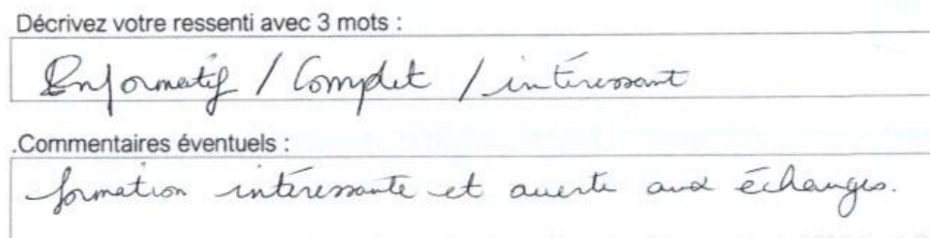 Décrivez votre ressenti avec 3 mots :
Informatif / Complet / intéressant
.Commentaires éventuels :
formation intéressante et ouverte aux échanges.